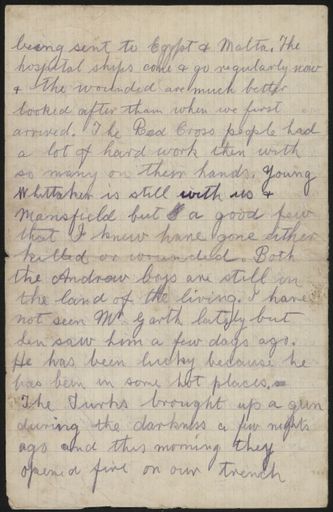 being sent to Egypt & Malta. The
hospital ships come & go regularly now
& the wounded are much better
looked after than when we first
arrived. The Red Cross people had
a lot of hard work then with
so many on their hands. Young
Whittaker is still with us &
Mansfield but a good few
that I knew have gone either
killed or wounded. Both
the Andrew boys are still in
the land of the living. I have
not seen Mr Garth lately but
Len saw him a few days ago.
He has been lucky because he
has been in some hot places.
The Turks brought up a gun
during the darkness a few nights
ago and this morning they
opened fire on our trench